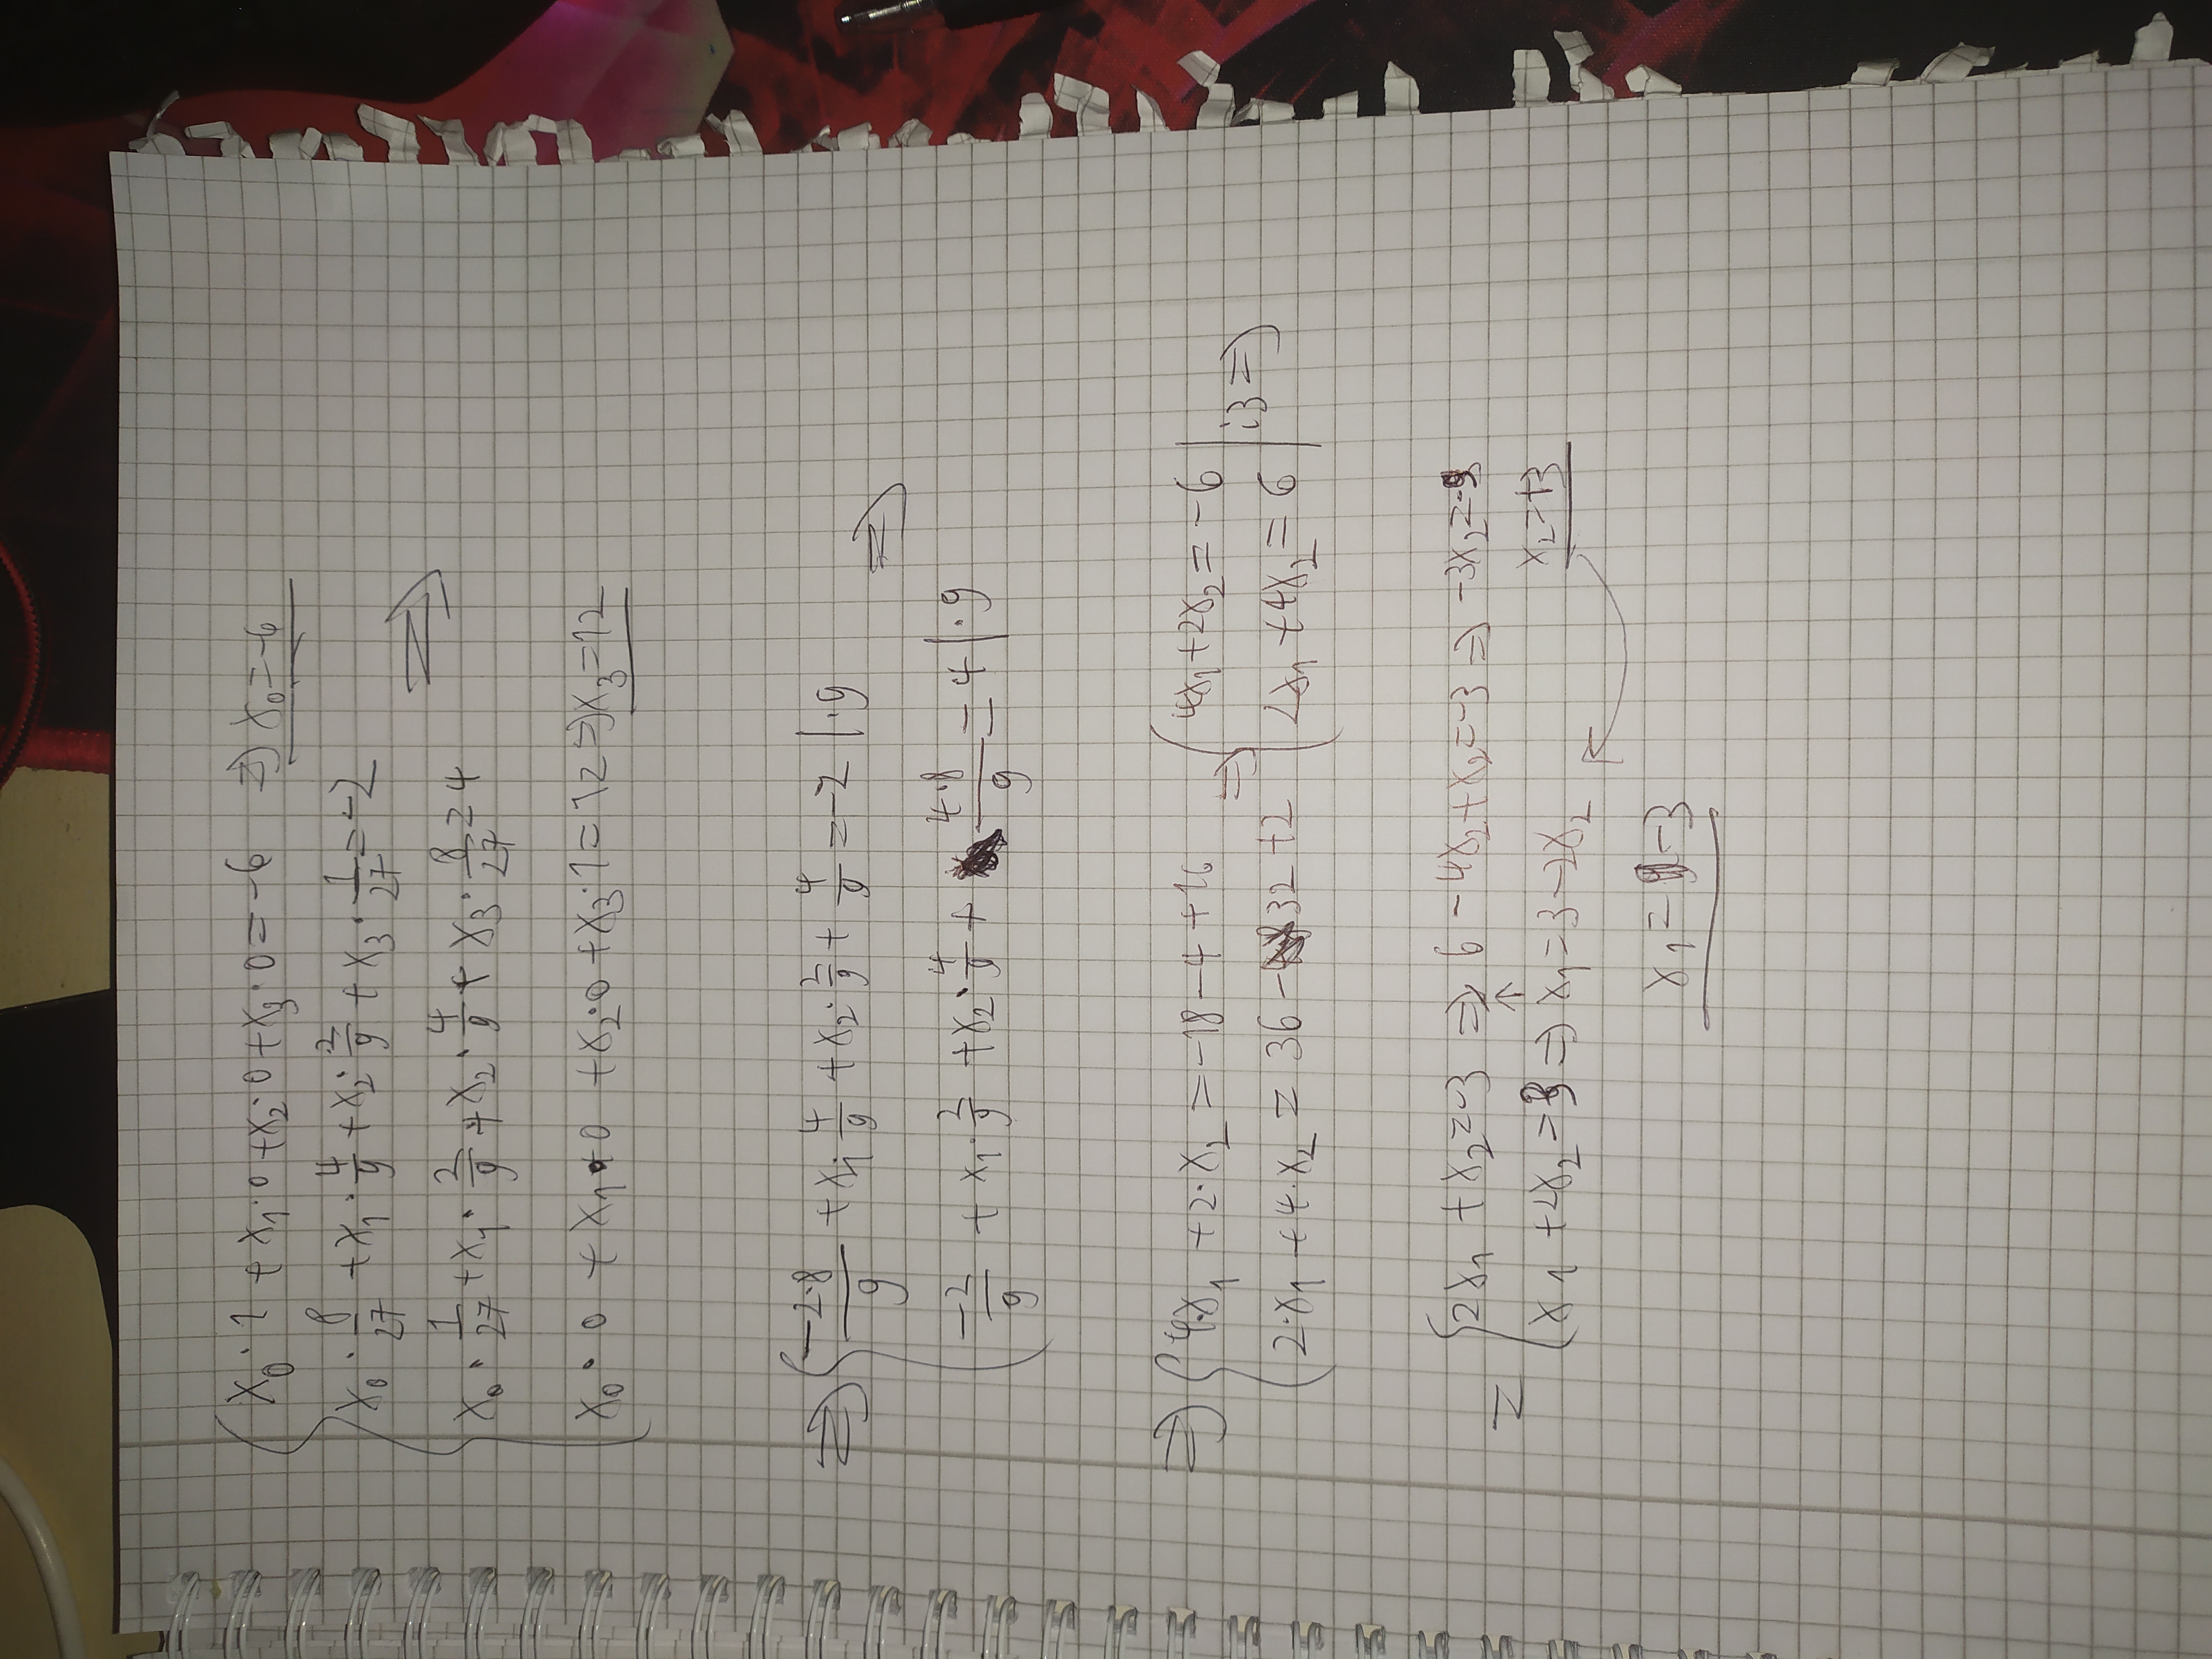 x₀ · 1 + x₁ · 0 + x₂ · 0 + x₃ · 0 = -6 ⇒ x₀ = -6
x₀ · 8/27 + x₁ · 4/9 + x₂ · 2/9 + x₃ · 1/27 = -2
⇒
x₀ · 1/27 + x₁ · 2/9 + x₂ · 4/9 + x₃ · 8/27 = 4
x₀ · 0 + x₁ · 0 + x₂ · 0 + x₃ · 1 = 12 ⇒ x₃ = 12
⇒ { -2·8/9 + x₁ · 4/9 + x₂ · 2/9 + 4/9 = -2 | · 9
⇒
-2/9 + x₁ · 2/9 + x₂ · 4/9 + 4·8/9 = 4 | · 9
⇒ { 4·x₁ + 2·x₂ = -18 - 4 + 16 ⇒ { 4x₁ + 2x₂ = -6
2·x₁ + 4·x₂ = 36 - 32 + 2 2x₁ + 4x₂ = 6 | ⇒
= { 2x₁ + x₂ = -3 ⇒ 6 - 4x₂ + x₂ = -3 ⇒ -3x₂ = -9
↑
x₁ + 2x₂ = 3 ⇒ x₁ = 3 - 2x₂
x₂ = +3
x₁ = -3